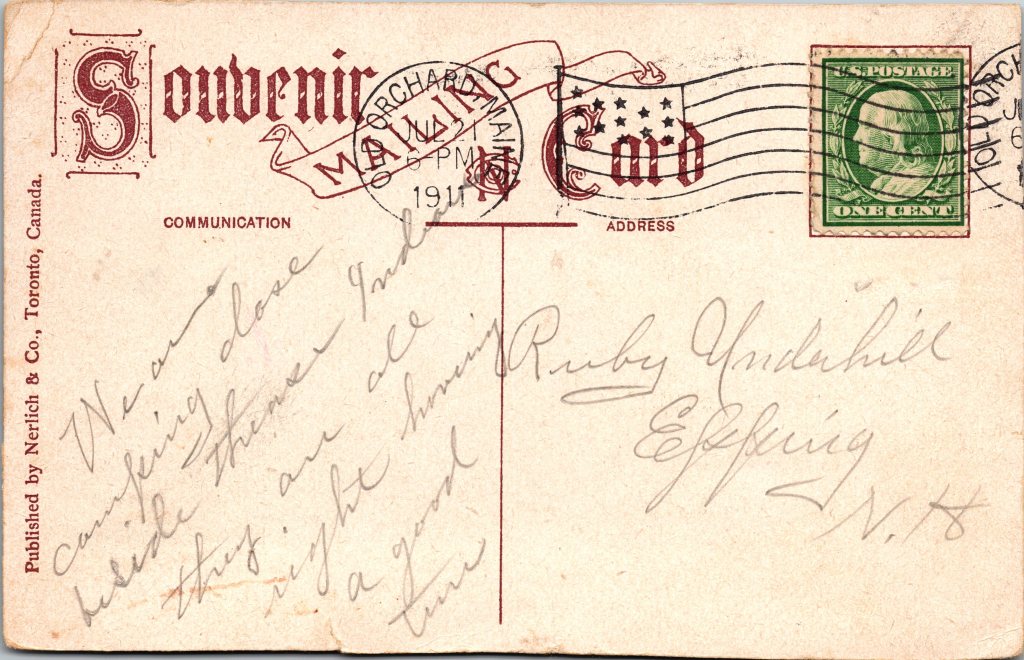 Souvenir
MAILING
Card
OLD ORCHARD, MAINE
JUL 21
6-PM
1911
OLD ORCH
U.S. POSTAGE
ONE CENT
COMMUNICATION
ADDRESS
Published by Nerlich & Co., Toronto, Canada.
We are
camping close
beside these Indian
they are all
right having
a good
time
Ruby Underhill
Epping
N.H